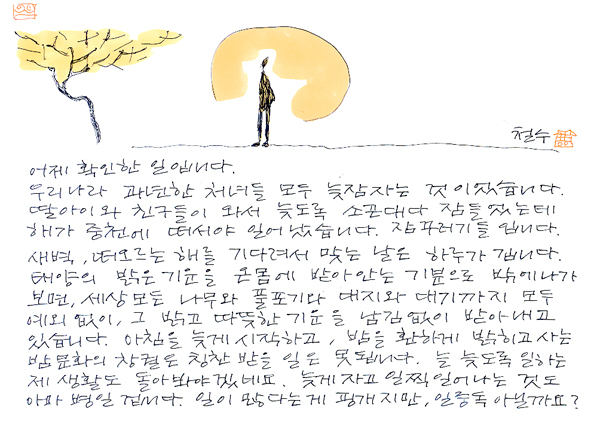 철수
어제 확인한 일입니다.
우리나라 과년한 처녀들 모두 늦잠자는 것 이었습니다.
딸아이와 친구들이 와서 늦도록 소곤대다 잠들었는데
해가 중천에 떠서야 일어났습니다. 잠꾸러기들입니다.
새벽, 떠오르는 해를 기다려서 맞는 날은 하루가 깁니다.
태양의 밝은 기운을 온몸에 받아안는 기분으로 밖에나가
보면, 세상 모든 나무와 풀포기와 대지와 대기까지 모두
예외 없이, 그 밝고 따뜻한 기운을 남김없이 받아내고
있습니다. 아침을 늦게 시작하고, 밤을 환하게 밝히고 사는
밤문화의 창궐은 칭찬 받을 일은 못됩니다. 늘 늦도록 일하는
제 생활도 돌아봐야겠네요. 늦게 자고 일찍 일어나는 것도
아마 병일 겁니다. 일이 많다는게 핑계지만, 일중독 아닐까요?